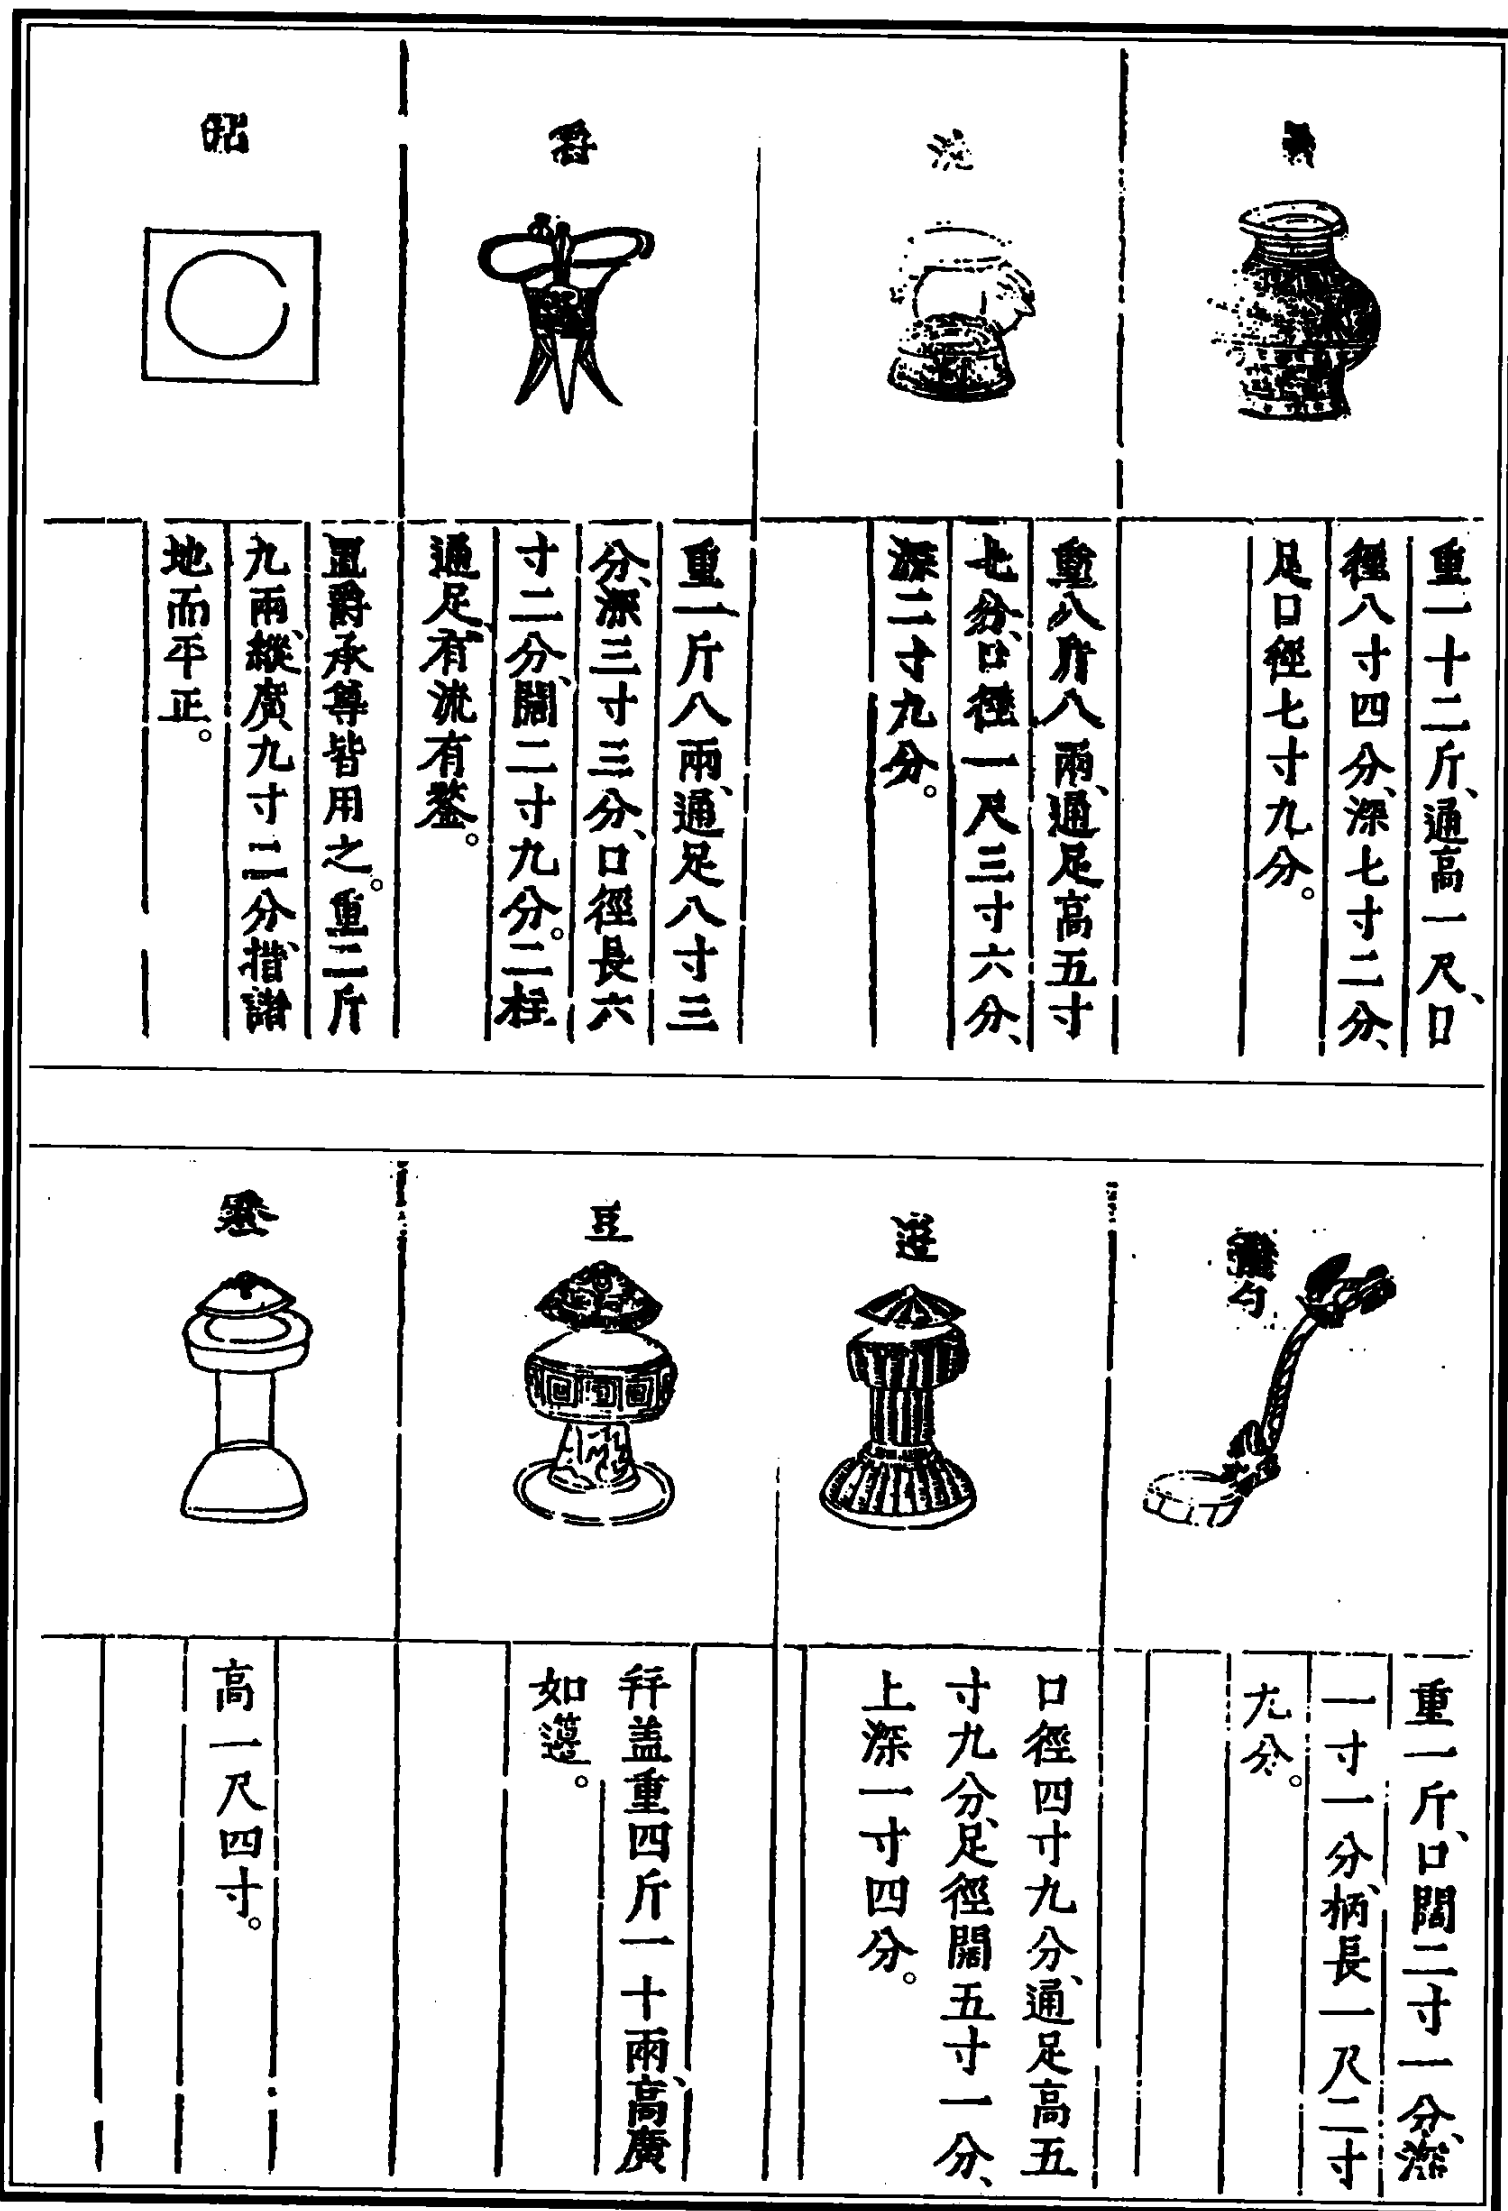 重一十二斤、通高一尺、口
徑八寸四分、深七寸二分、
足口徑七寸九分。
洗
重八斤八兩、通足高五寸
七分、口徑一尺三寸六分、
深二寸九分。
爵
重一斤八兩、通足八寸三
分、深三寸三分、口徑長六
寸二分、闊二寸九分。二柱
通足、有流有鋬。
坫
置爵承尊皆用之。重二斤
九兩、縱廣九寸二分、措諸
地而平正。
勺
重一斤、口闊二寸一分、深
一寸一分、柄長一尺二寸
九分。
籩
口徑四寸九分、通足高五
寸九分、足徑闊五寸一分、
上深一寸四分。
豆
幷盖重四斤一十兩、高廣
如籩。
高一尺四寸。